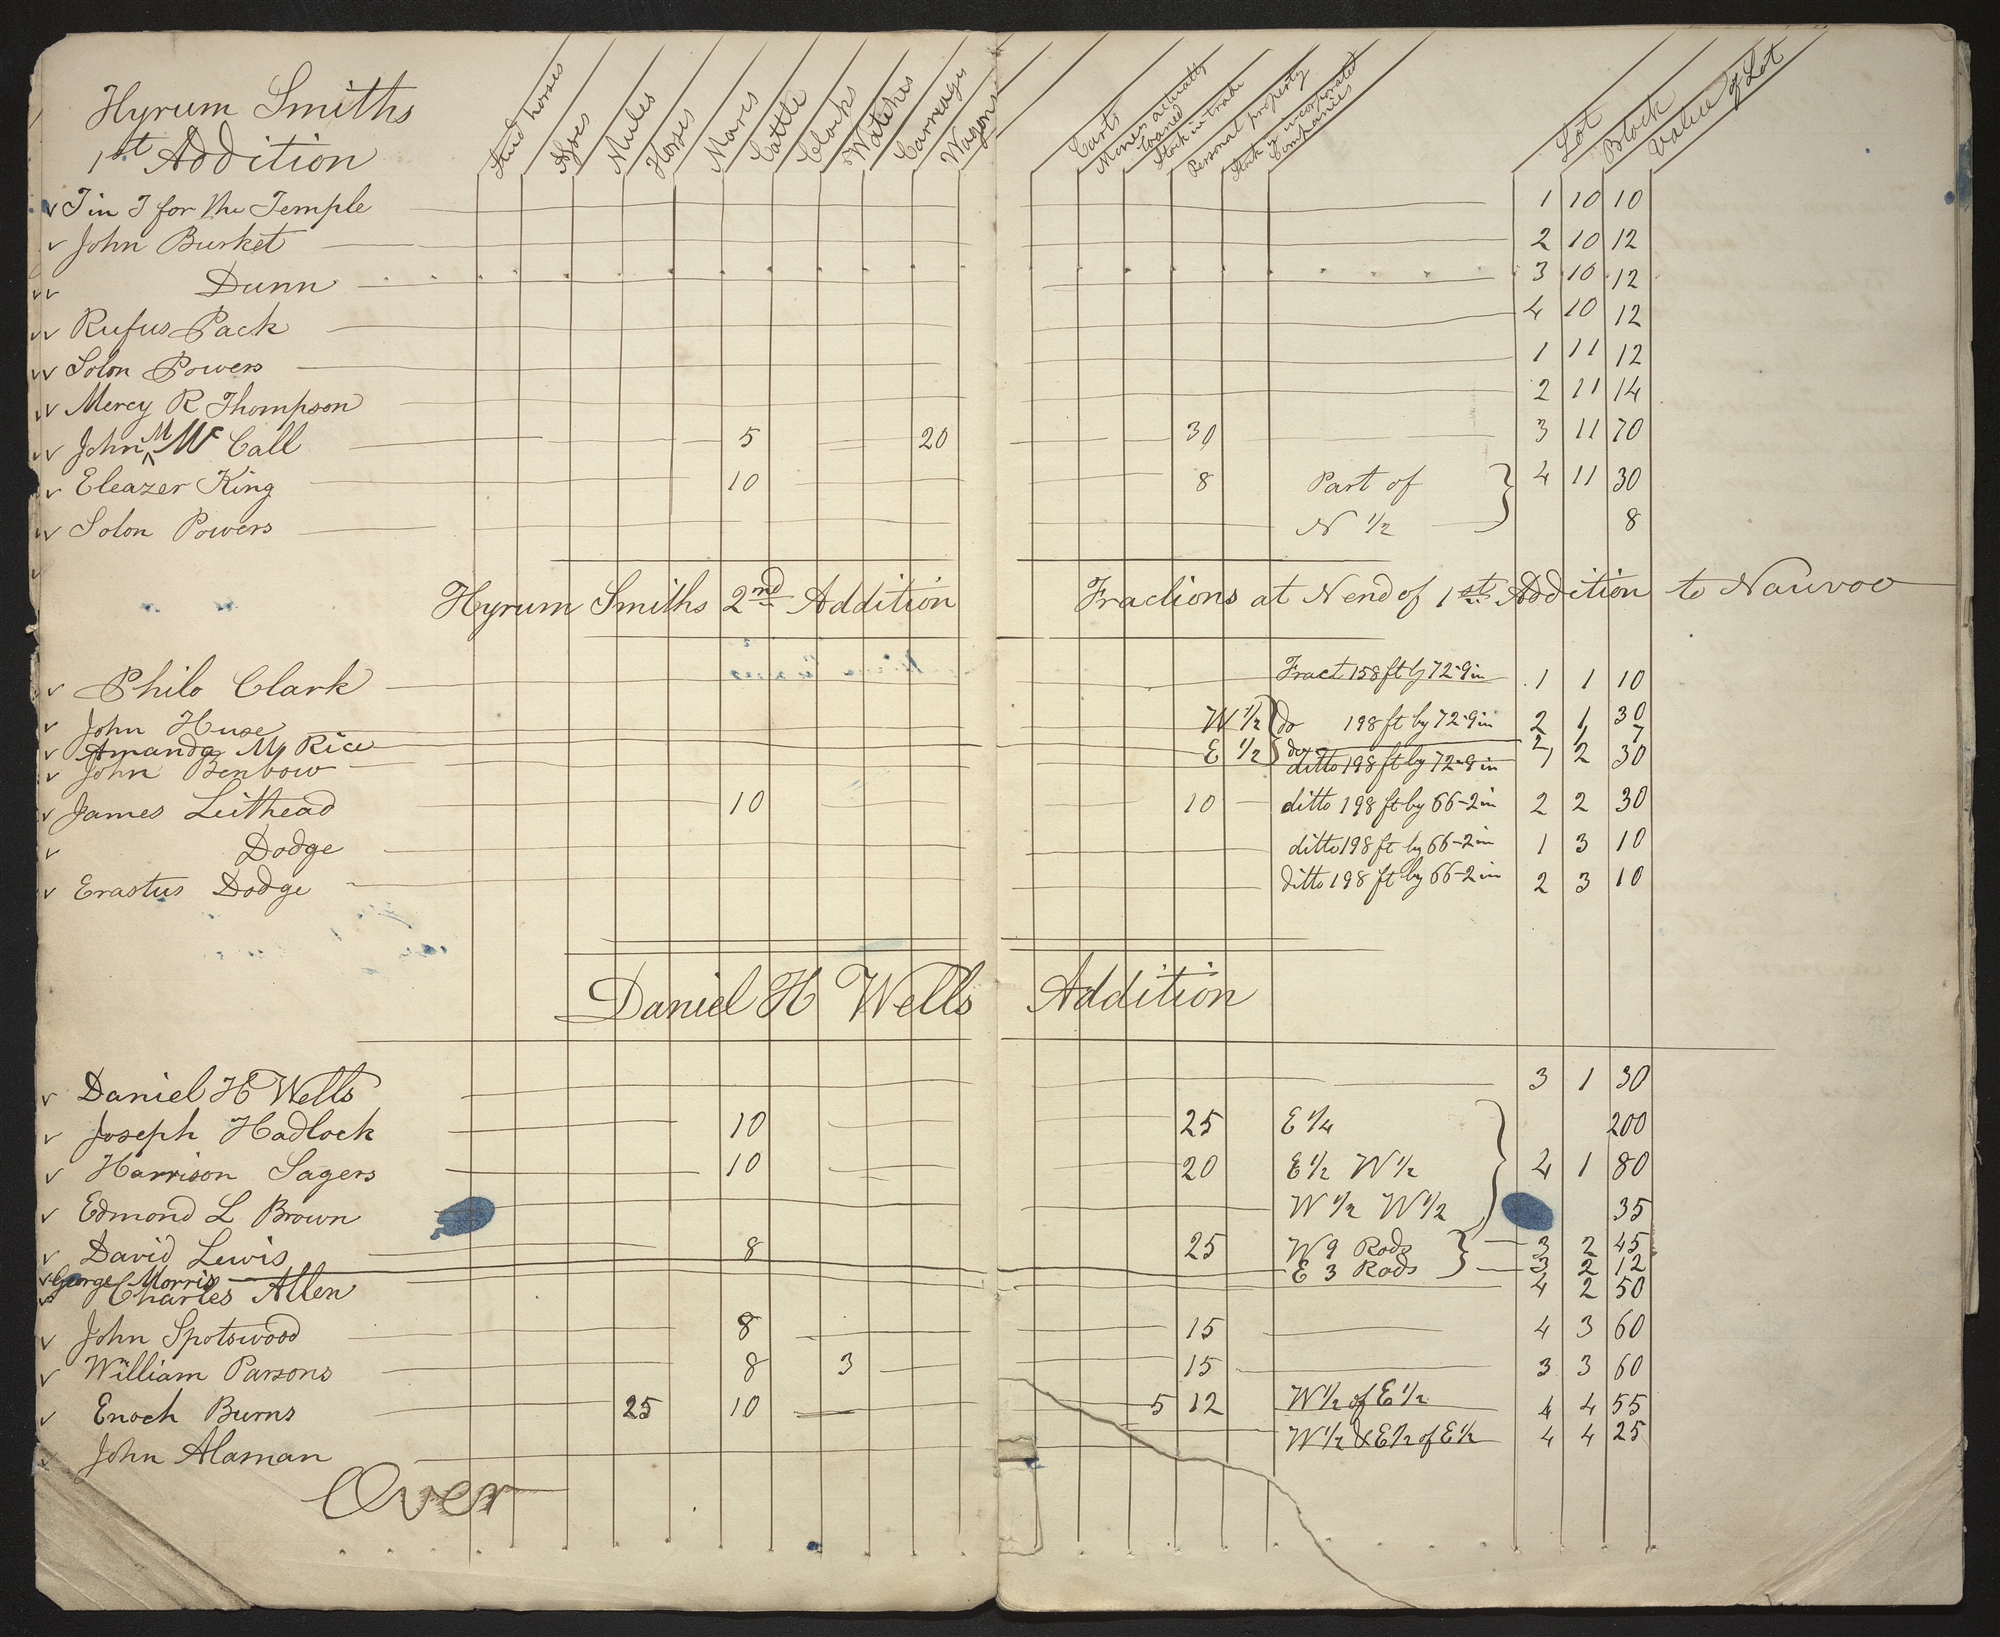 Hyrum Smiths
1st Addition
Stud horses Ages Mules Horses Mares Cattle Clocks Watches Carriages Wagons Carts Monies actually Loaned Stock in trade Personal property Stock in incorporated Companies Lot Block Value of Lot
T in T for the Temple 1 10 10
John Burket 2 10 12
Dunn 3 10 12
Rufus Pack 4 10 12
Solon Powers 1 11 12
Mercy R Thompson 2 11 14
John M Mc Call 5 20 30 3 11 70
Eleazer King 10 8 Part of 4 11 30
Solon Powers N 1/2 8
Hyrum Smiths 2nd Addition Fractions at N end of 1st Addition to Nauvoo
Philo Clark Fract 158 ft by 72-9 in 1 1 10
John Huse W 1/2 do 198 ft by 72-9 in 2 1 30
Amanda M Rice E 1/2 do 2 1 7
John Benbow ditto 198 ft by 72-9 in 1 2 30
James Leithead 10 10 ditto 198 ft by 66-2 in 2 2 30
Dodge ditto 198 ft by 66-2 in 1 3 10
Erastus Dodge ditto 198 ft by 66-2 in 2 3 10
Daniel H Wells Addition
Daniel H Wells 3 1 30
Joseph Hadlock 10 25 E 1/4 200
Harrison Sagers 10 20 E 1/2 W 1/2 4 1 80
Edmond L Brown W 1/2 W 1/2 35
David Lewis 8 25 W 9 Rods 3 2 45
George Morris E 3 Rods 3 2 12
Charles Allen 4 2 50
John Spotswood 8 15 4 3 60
William Parsons 8 3 15 3 3 60
Enoch Burns 25 10 5 12 W 1/2 of E 1/2 4 4 55
John Alaman W 1/2 & E 1/2 of E 1/2 4 4 25
Over